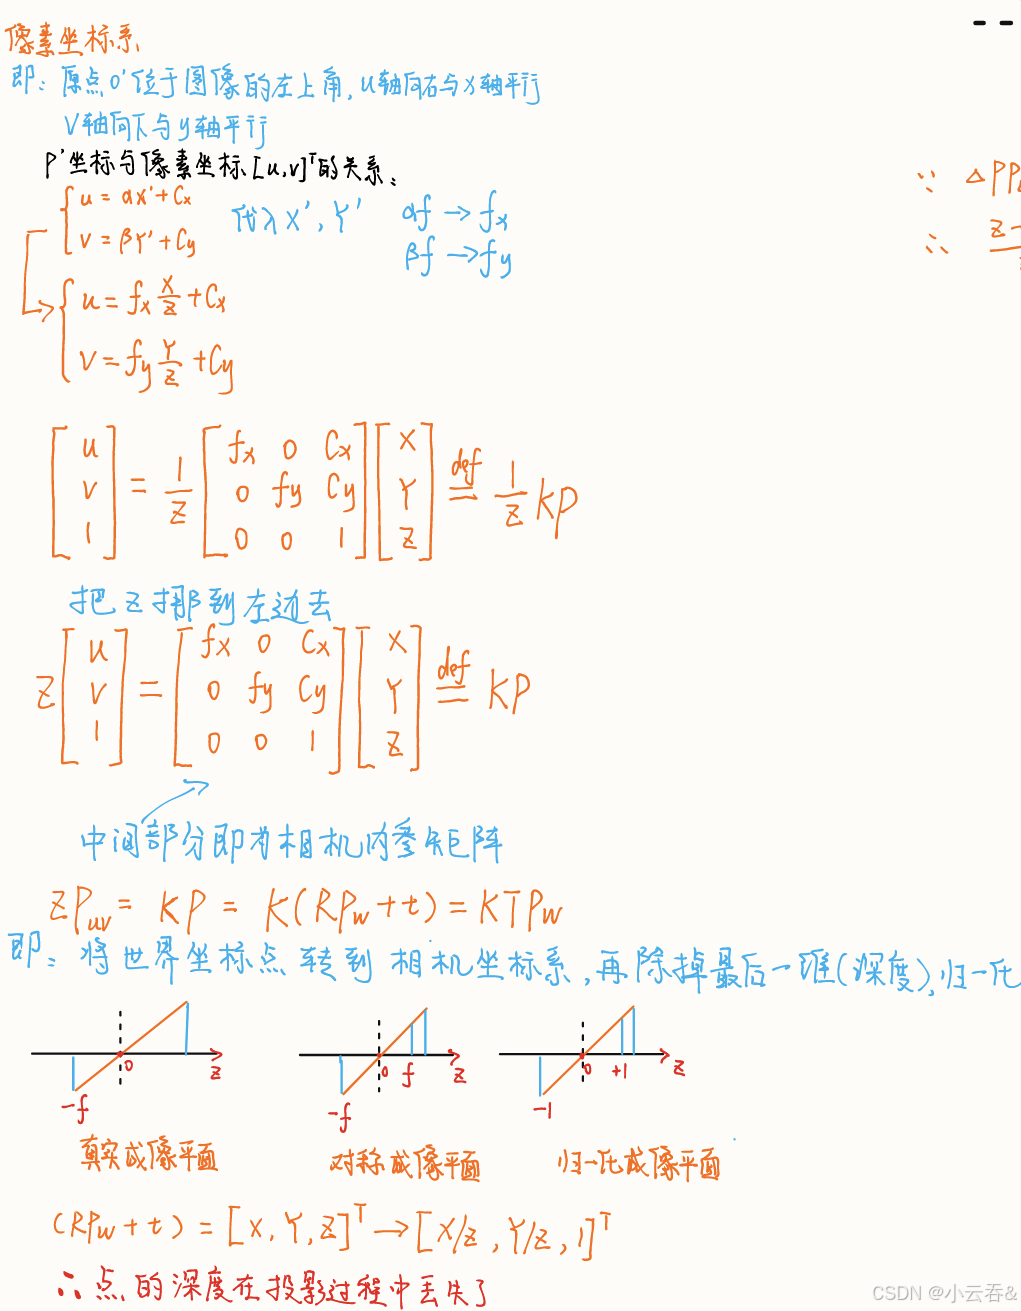 像素坐标系
即: 原点o'位于图像的左上角, u轴向右与x轴平行
v轴向下与y轴平行
P'坐标与像素坐标[u,v]ᵀ的关系:
u = αx' + Cx
v = βY' + Cy
代入X', Y' αf → fx
βf → fy
u = fx X/Z + Cx
v = fy Y/Z + Cy
∵ △PP
∴ z-
[u v 1] = 1/Z [fx 0 Cx; 0 fy Cy; 0 0 1] [X Y Z] def= 1/Z KP
把Z挪到左边去
Z [u v 1] = [fx 0 Cx; 0 fy Cy; 0 0 1] [X Y Z] def= KP
中间部分即为相机内参矩阵
ZPuv = KP = K(RPw + t) = KTPw
即: 将世界坐标点转到相机坐标系, 再除掉最后一维(深度), 归一化
-f 0 z
-f 0 f z
-1 0 +1 z
真实成像平面 对称成像平面 归一化成像平面
(RPw + t) = [X, Y, Z]ᵀ → [X/Z, Y/Z, 1]ᵀ
∴ 点的深度在投影过程中丢失了
CSDN @小云吞&